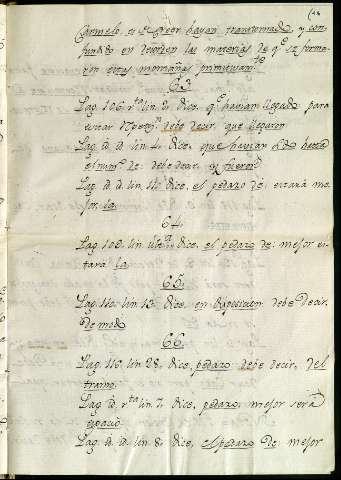 Carmelo, et et creer hayan transformado, y con-
fundido en desorden las materias de qe. se forma-
ron estas montañas primitivamte.
63.
Pag. 106. vta lin. 2. dice, qe. havian llegado para
debe decir, que llegaron
Pag. id. id. lin. 4. dice, que havian sido hasta
el num.o de: debe decir, y fueron
Pag. id. id. lin. 11. dice, el pedazo de: estará me-
jor, la
64.
Pag. 108. lin. ulta. dice, el pedazo de: mejor es-
tará la
65.
Pag. 110. lin. 13. dice, en debe decir,
de modo
66.
Pag. 116. lin. 28. dice, pedazo debe decir, del
tramo.
Pag. id. vta lin. 7. dice, pedazo, mejor será
espacio.
Pag. id. id. lin. 8. dice, el pedazo de mejor